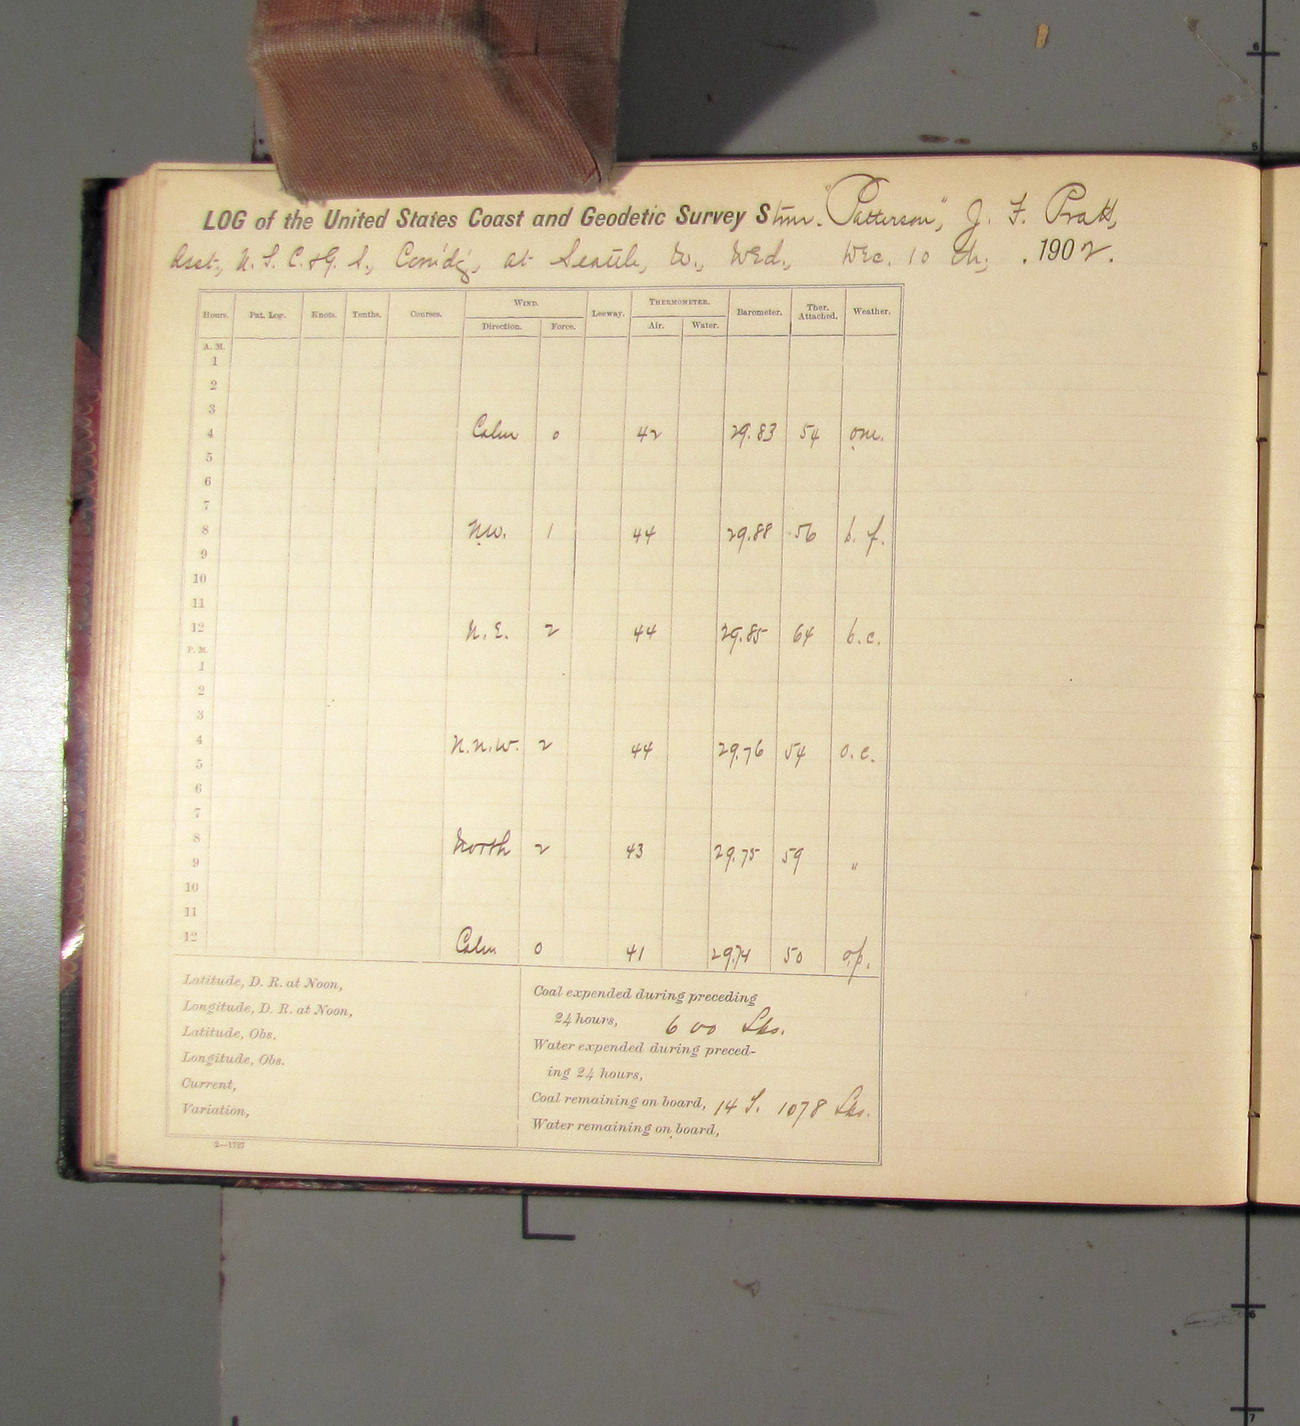 LOG of the United States Coast and Geodetic Survey Stmr. "Patterson", J. F. Pratt,
Asst., U. S. C. & G. S., Com'd'g, at Seattle, W., Wed., Dec. 10 th, . 1902.
Hours. Pat. Log. Knots. Tenths. Courses. WIND. Leeway. THERMOMETER. Barometer. Ther. Attached. Weather.
Direction. Force. Air. Water.
A. M.
1
2
3
4 Calm 0 42 29.83 54 om.
5
6
7
8 NW. 1 44 29.88 56 b. f.
9
10
11
12 N. E. 2 44 29.85 64 b. c.
P. M.
1
2
3
4 N.N.W. 2 44 29.76 54 o. c.
5
6
7
8 North 2 43 29.75 59 "
9
10
11
12 Calm 0 41 29.74 50 o.p.
Latitude, D. R. at Noon,
Longitude, D. R. at Noon,
Latitude, Obs.
Longitude, Obs.
Current,
Variation,
Coal expended during preceding
24 hours, 600 Lbs.
Water expended during preced-
ing 24 hours,
Coal remaining on board, 14 T. 1078 Lbs.
Water remaining on board,
2—1727
6
5
6
7